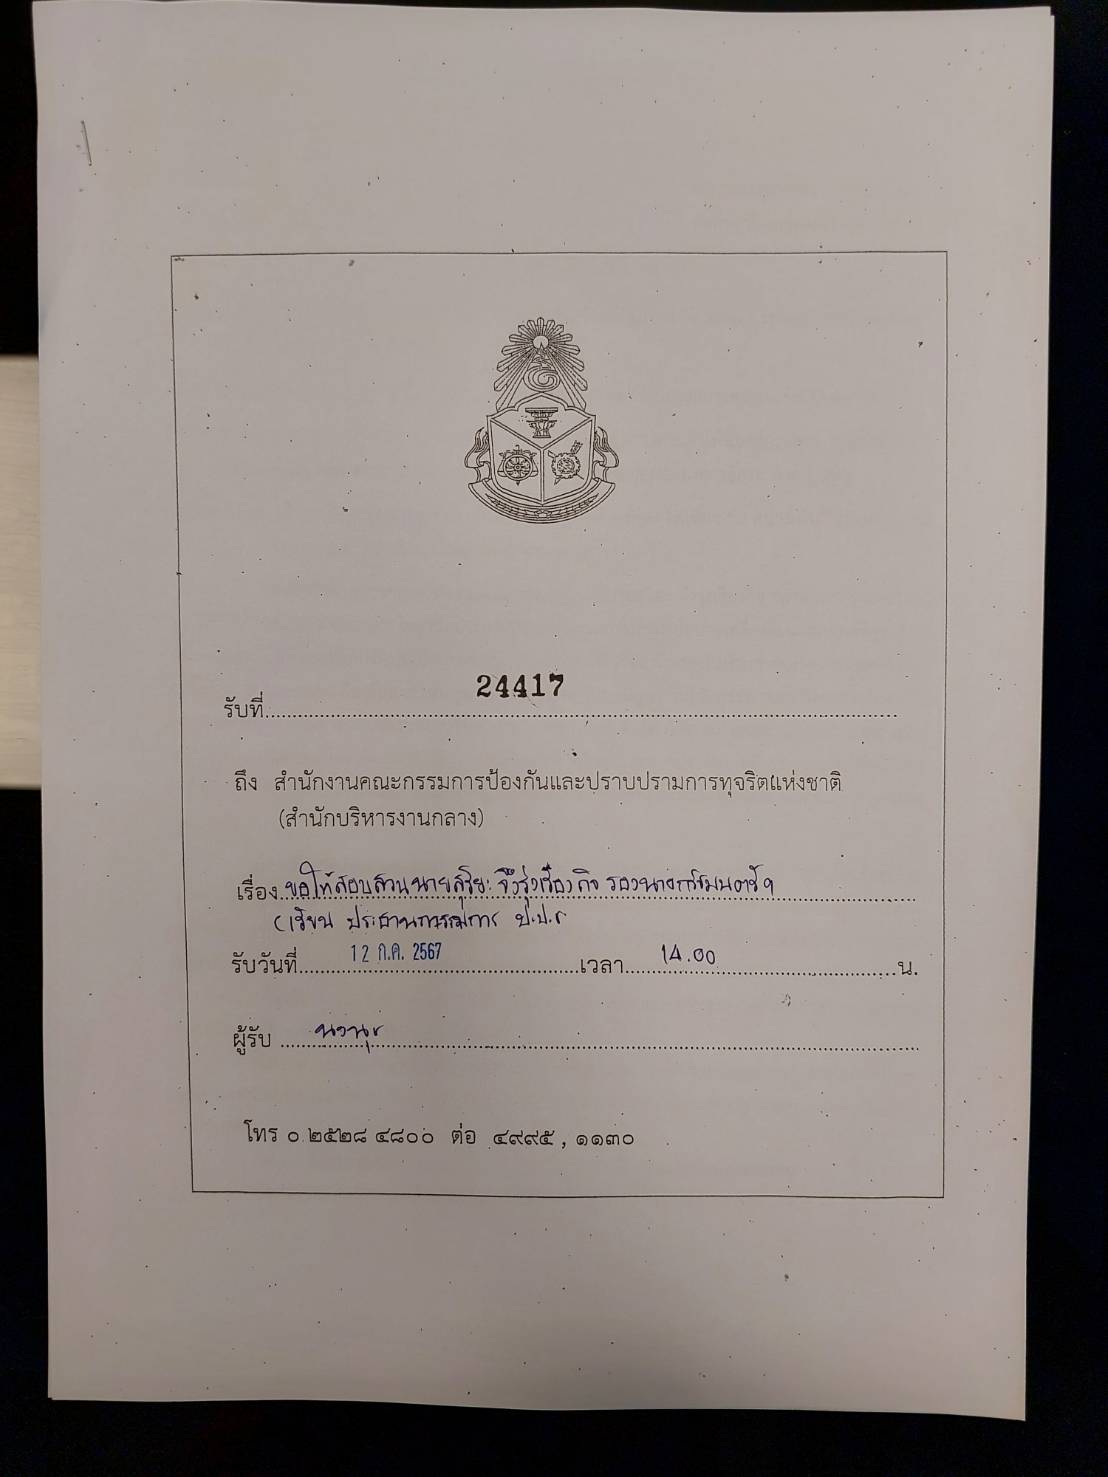 รับที่ 24417
ถึง สำนักงานคณะกรรมการป้องกันและปราบปรามการทุจริตแห่งชาติ
(สำนักบริหารงานกลาง)
เรื่อง ขอให้สอบสวนนายสุริยะ จึงรุ่งเรืองกิจ รองนายกรัฐมนตรีฯ
(เรียน ประธานกรรมการ ป.ป.ช
รับวันที่ 12 ก.ค. 2567 เวลา 14.00 น.
ผู้รับ นวนุช
โทร ๐ ๒๕๒๘ ๔๘๐๐ ต่อ ๔๙๙๕ , ๑๑๓๐